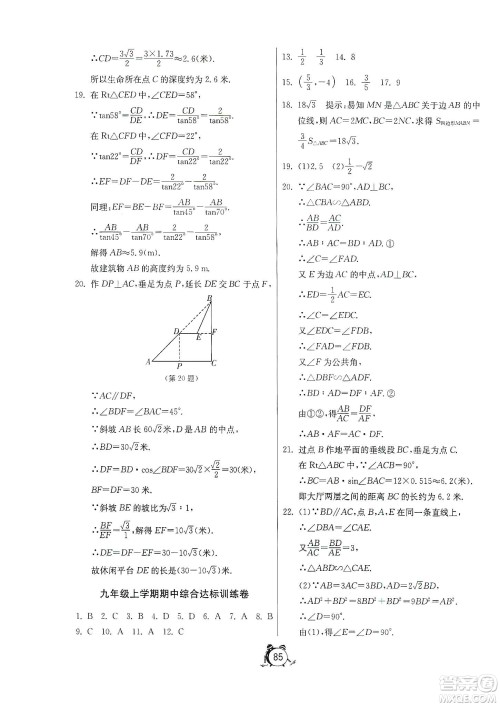 ∴CD=3√3/2≈3×1.73/2≈2.6(米).
所以生命所在点 C 的深度约为 2.6 米.
19. 在 Rt△CED 中,∠CED=58°,
∵tan58°=CD/DE,∴DE=CD/tan58°=2/tan58°.
在 Rt△CFD 中,∠CFD=22°,
∵tan22°=CD/DF,∴DF=CD/tan22°=2/tan22°.
∴EF=DF-DE=2/tan22°-2/tan58°.
同理:EF=BE-BF=AB/tan45°-AB/tan70°,
∴AB/tan45°-AB/tan70°=2/tan22°-2/tan58°.
解得 AB≈5.9(m).
故建筑物 AB 的高度约为 5.9 m.
20. 作 DP⊥AC,垂足为点 P,延长 DE 交 BC 于点 F,
B
D
E
F
A
P
C
(第 20 题)
∵AC∥DF,
∴∠BDF=∠BAC=45°.
∵斜坡 AB=60√2米,D 是 AB 的中点,
∴BD=30√2米.
∴DF=BD·cos∠BDF=30√2×√2/2=30(米),
BF=DF=30 米.
∵斜坡 BE 的坡比为√3:1,
∴BF/EF=√3/1,解得 EF=10√3(米).
∴DE=DF-EF=30-10√3(米).
故休闲平台 DE 的长是(30-10√3)米.
九年级上学期期中综合达标训练卷
1. B 2. C 3. A 4. A 5. A 6. C 7. A 8. B
9. C 10. A 11. A 12. B
13. 1/2 1/3 14. 8
15. (5/3,-4) 16. 3/5 17. 9
18. 18√3 提示:易知 MN 是△ABC 关于边 AB 的中
位线,则 AC=2MC,BC=2NC,求得 S四边形MABN=
3/4 S△ABC=18√3.
19. (1)2.5 (2)1/2-√2
20. ∵∠BAC=90°,AD⊥BC,
∴△CBA∽△ABD.
∴AB/BD=AC/AD.
∴AB·AD=AC·BD.①
又 E 为边 AC 的中点,AD⊥BC,
∴ED=1/2AC=EC.
∴∠C=∠EDC.
又∠EDC=∠FDB,
∴∠C=∠FDB.
又∠C=∠BAD,
∴∠BAD=∠FDB.
又∠F 为公共角,
∴△DBF∽△ADF.
∴BD/AD=DF/AF.②
由①②,得AB/AC=DF/AF.
∴AB·AF=AC·DF.
21. 过点 B 作地平面的垂线段 BC,垂足为点 C.
在 Rt△ABC 中,∵∠ACB=90°,
∴BC=AB·sin∠BAC=12×0.515≈6.2(米).
即大厅两层之间的距离 BC 约为 6.2 米.
22. (1)∵BD∥AC,点 B,A,E 在同一条直线上,
∴∠DBA=∠CAE.
又∵AB/AC=BD/AE=3,
∴△ABD∽△CAE.
(2)∵AB=3AC=3BD,AD=2√2BD,
∴AD²+BD²=8BD²+BD²=9BD²=AB².
∴∠D=90°.
由(1),得∠E=∠D=90°.
85
答案圈
MXQE.COM